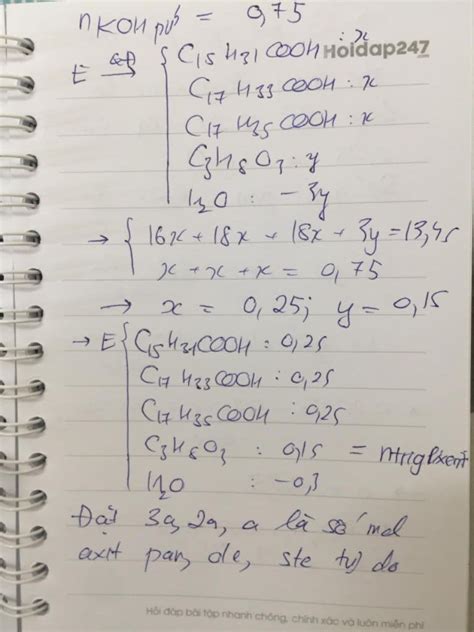 nKOH pứ = 0,75
Hoidap247
E qđ→ C15H31COOH : x
C17H33COOH : x
C17H35COOH : x
C3H8O3 : y
H2O : -3y
→ 16x + 18x + 18x + 3y = 13,45
x + x + x = 0,75
→ x = 0,25; y = 0,15
→ E C15H31COOH : 0,25
C17H33COOH : 0,25
C17H35COOH : 0,25
C3H8O3 : 0,15 = ntriglixerit
H2O : -0,3
Đặt 3a, 2a, a là số mol
axit pan, ole, ste tự do
Hỏi đáp bài tập nhanh chóng, chính xác và luôn miễn phí